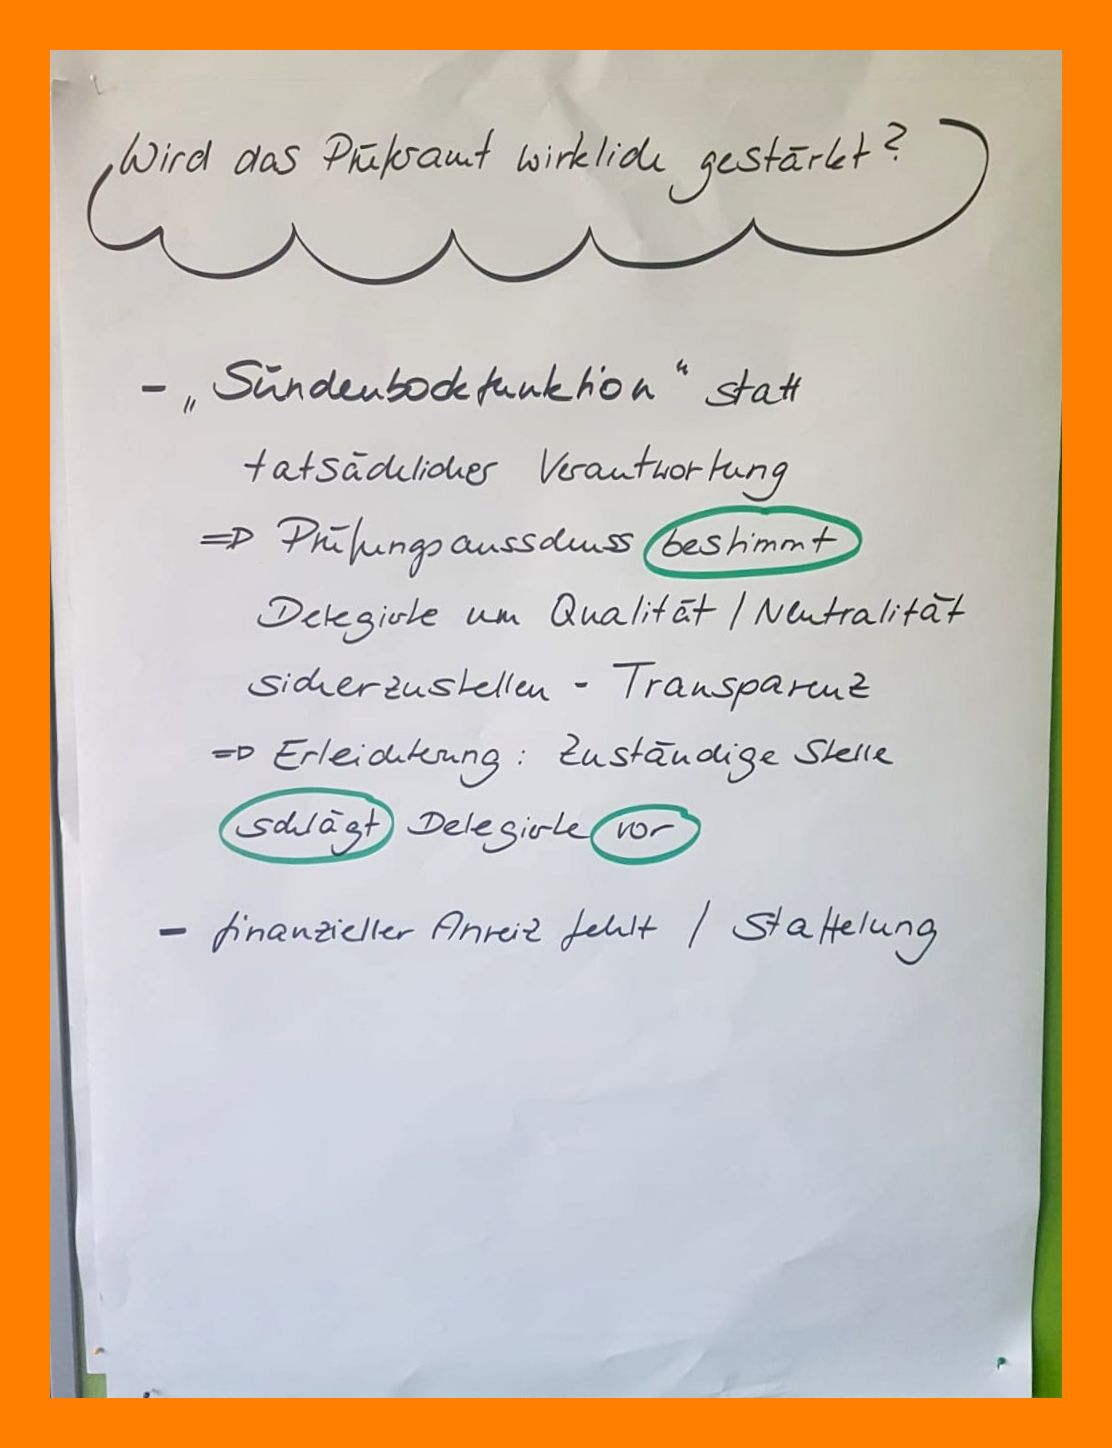 Wird das Prüferamt wirklich gestärkt?
- „Sündenbockfunktion“ statt
tatsächlicher Verantwortung
=> Prüfungsausschuss bestimmt
Delegierte um Qualität / Neutralität
sicherzustellen - Transparenz
=> Erleichterung: Zuständige Stelle
schlägt Delegierte vor
- finanzieller Anreiz fehlt / Staffelung